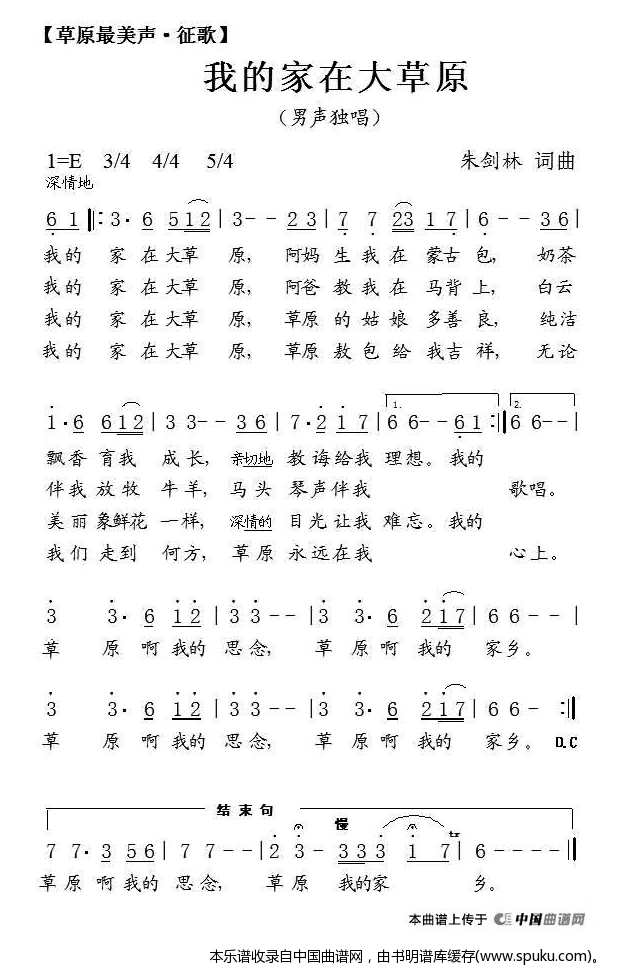 【草原最美声·征歌】
我的家在大草原
（男声独唱）
1=E 3/4 4/4 5/4 朱剑林 词曲
深情地
6 1 ‖: 3· 6 5 1 2 | 3 - - 2 3 | 7 7 2 3 1 7 | 6 - - 3 6 |
我的 家 在大草 原, 阿妈 生 我 在 蒙古 包, 奶茶
我的 家 在大草 原, 阿爸 教 我 在 马背 上, 白云
我的 家 在大草 原, 草原 的 姑 娘 多善 良, 纯洁
我的 家 在大草 原, 草原 敖 包 给 我吉 祥, 无论
1. 2.
1· 6 6 1 2 | 3 3 - - 3 6 | 7· 2 1 7 | 6 6 - - 6 1 :‖ 6 6 - - |
飘香 育我 成长, 亲切地 教 诲给我 理想。我的
伴我 放牧 牛羊, 马头 琴声伴我 歌唱。
美丽 象鲜花 一样, 深情的 目光让我 难忘。我的
我们 走到 何方, 草原 永远在我 心上。
3 3· 6 1 2 | 3 3 - - | 3 3· 6 2 1 7 | 6 6 - - |
草 原 啊 我的 思念, 草 原 啊 我的 家 乡。
3 3· 6 1 2 | 3 3 - - | 3 3· 6 2 1 7 | 6 6 - :‖
草 原 啊 我的 思念, 草 原 啊 我的 家乡。 D.C
结束句 慢
7 7· 3 5 6 | 7 7 - - | 2 3 - 3 3 3 1 7 | 6 - - - - ‖
草 原 啊 我的 思 念, 草 原 我的家 乡。
本曲谱上传于 中国曲谱网
本乐谱收录自中国曲谱网，由书明谱库缓存(www.spuku.com)。